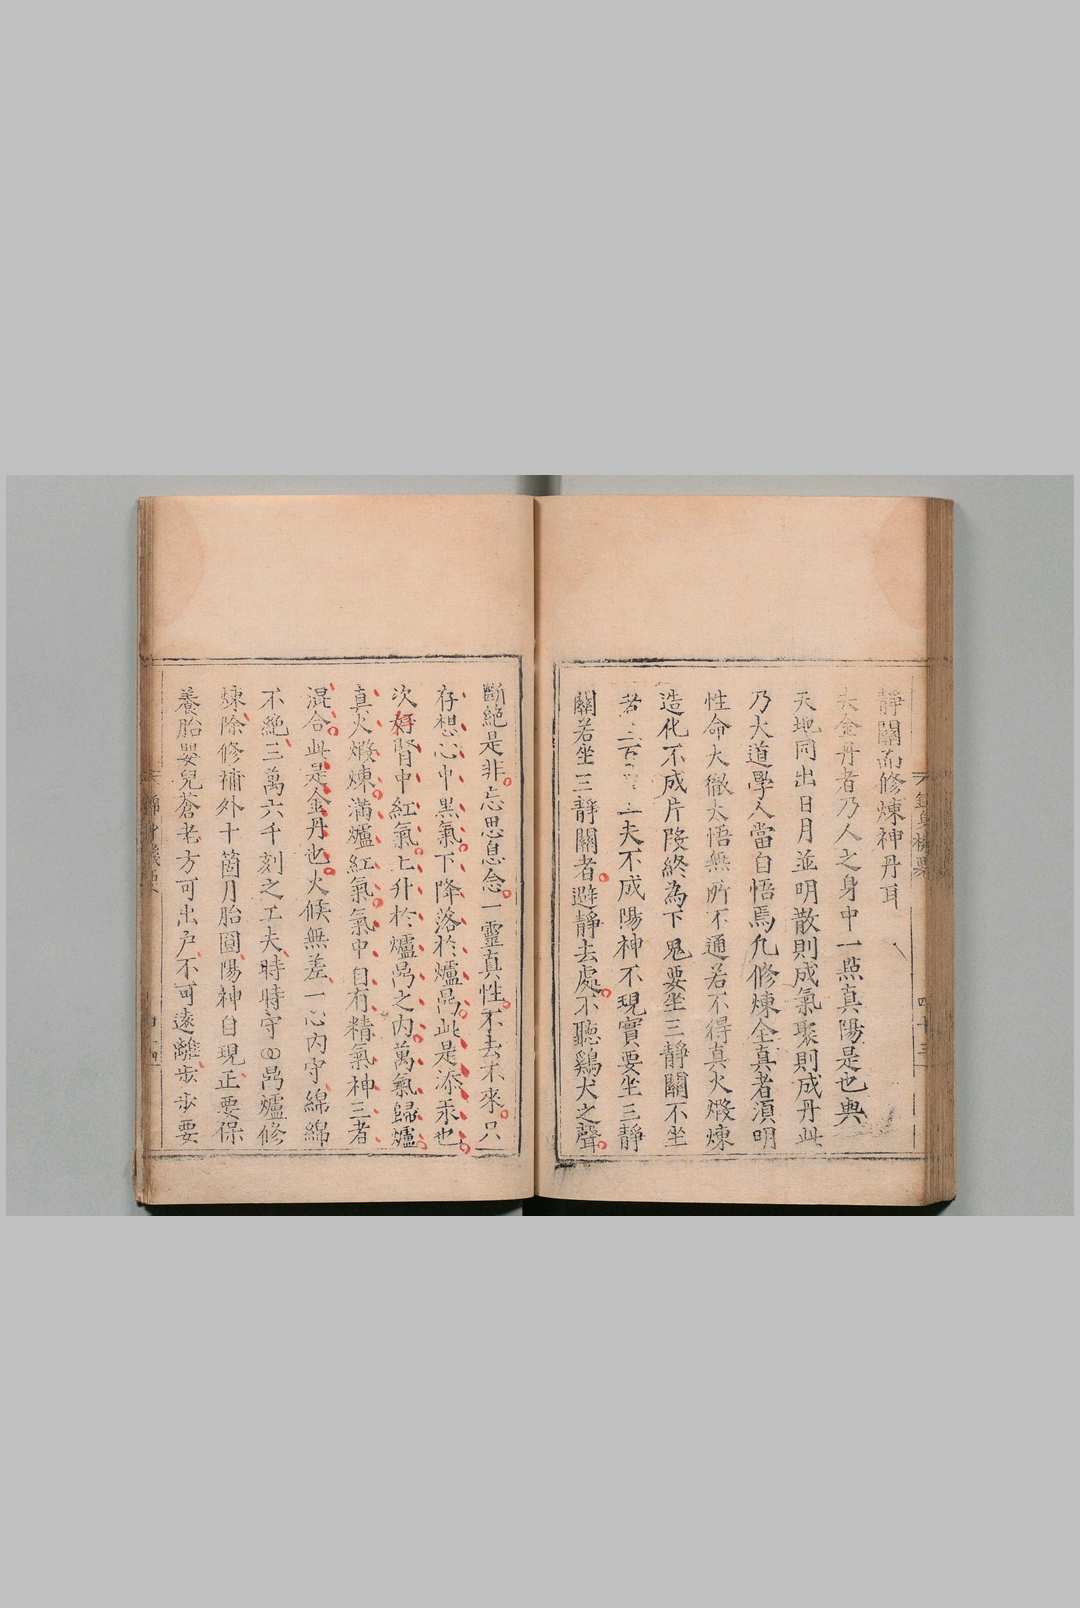 靜關而修煉神丹耳
夫金丹者乃人之身中一點真陽是也與
天地同出日月並明散則成氣聚則成丹此
乃大道學人當自悟焉凡修煉全真者須明
性命大徹大悟無所不通若不得真火煅煉
造化不成片段終為下鬼要坐三靜關不坐
若三百 工夫不成陽神不現實要坐三靜
關若坐三靜關者避靜去處不聽鷄犬之聲
斷絕是非忘思息念一靈真性不去不來只
存想心中黑氣下降落於爐鼎此是添汞也
次存腎中紅氣上升於爐鼎之內萬氣歸爐
真火煅煉滿爐紅氣氣中自有精氣神三者
混合此是金丹也火候無差一心內守綿綿
不絕三萬六千刻之工夫時時守 鼎爐修
煉除修補外十箇月胎圓陽神自現正要保
養胎嬰兒蒼老方可出戶不可遠離步步要